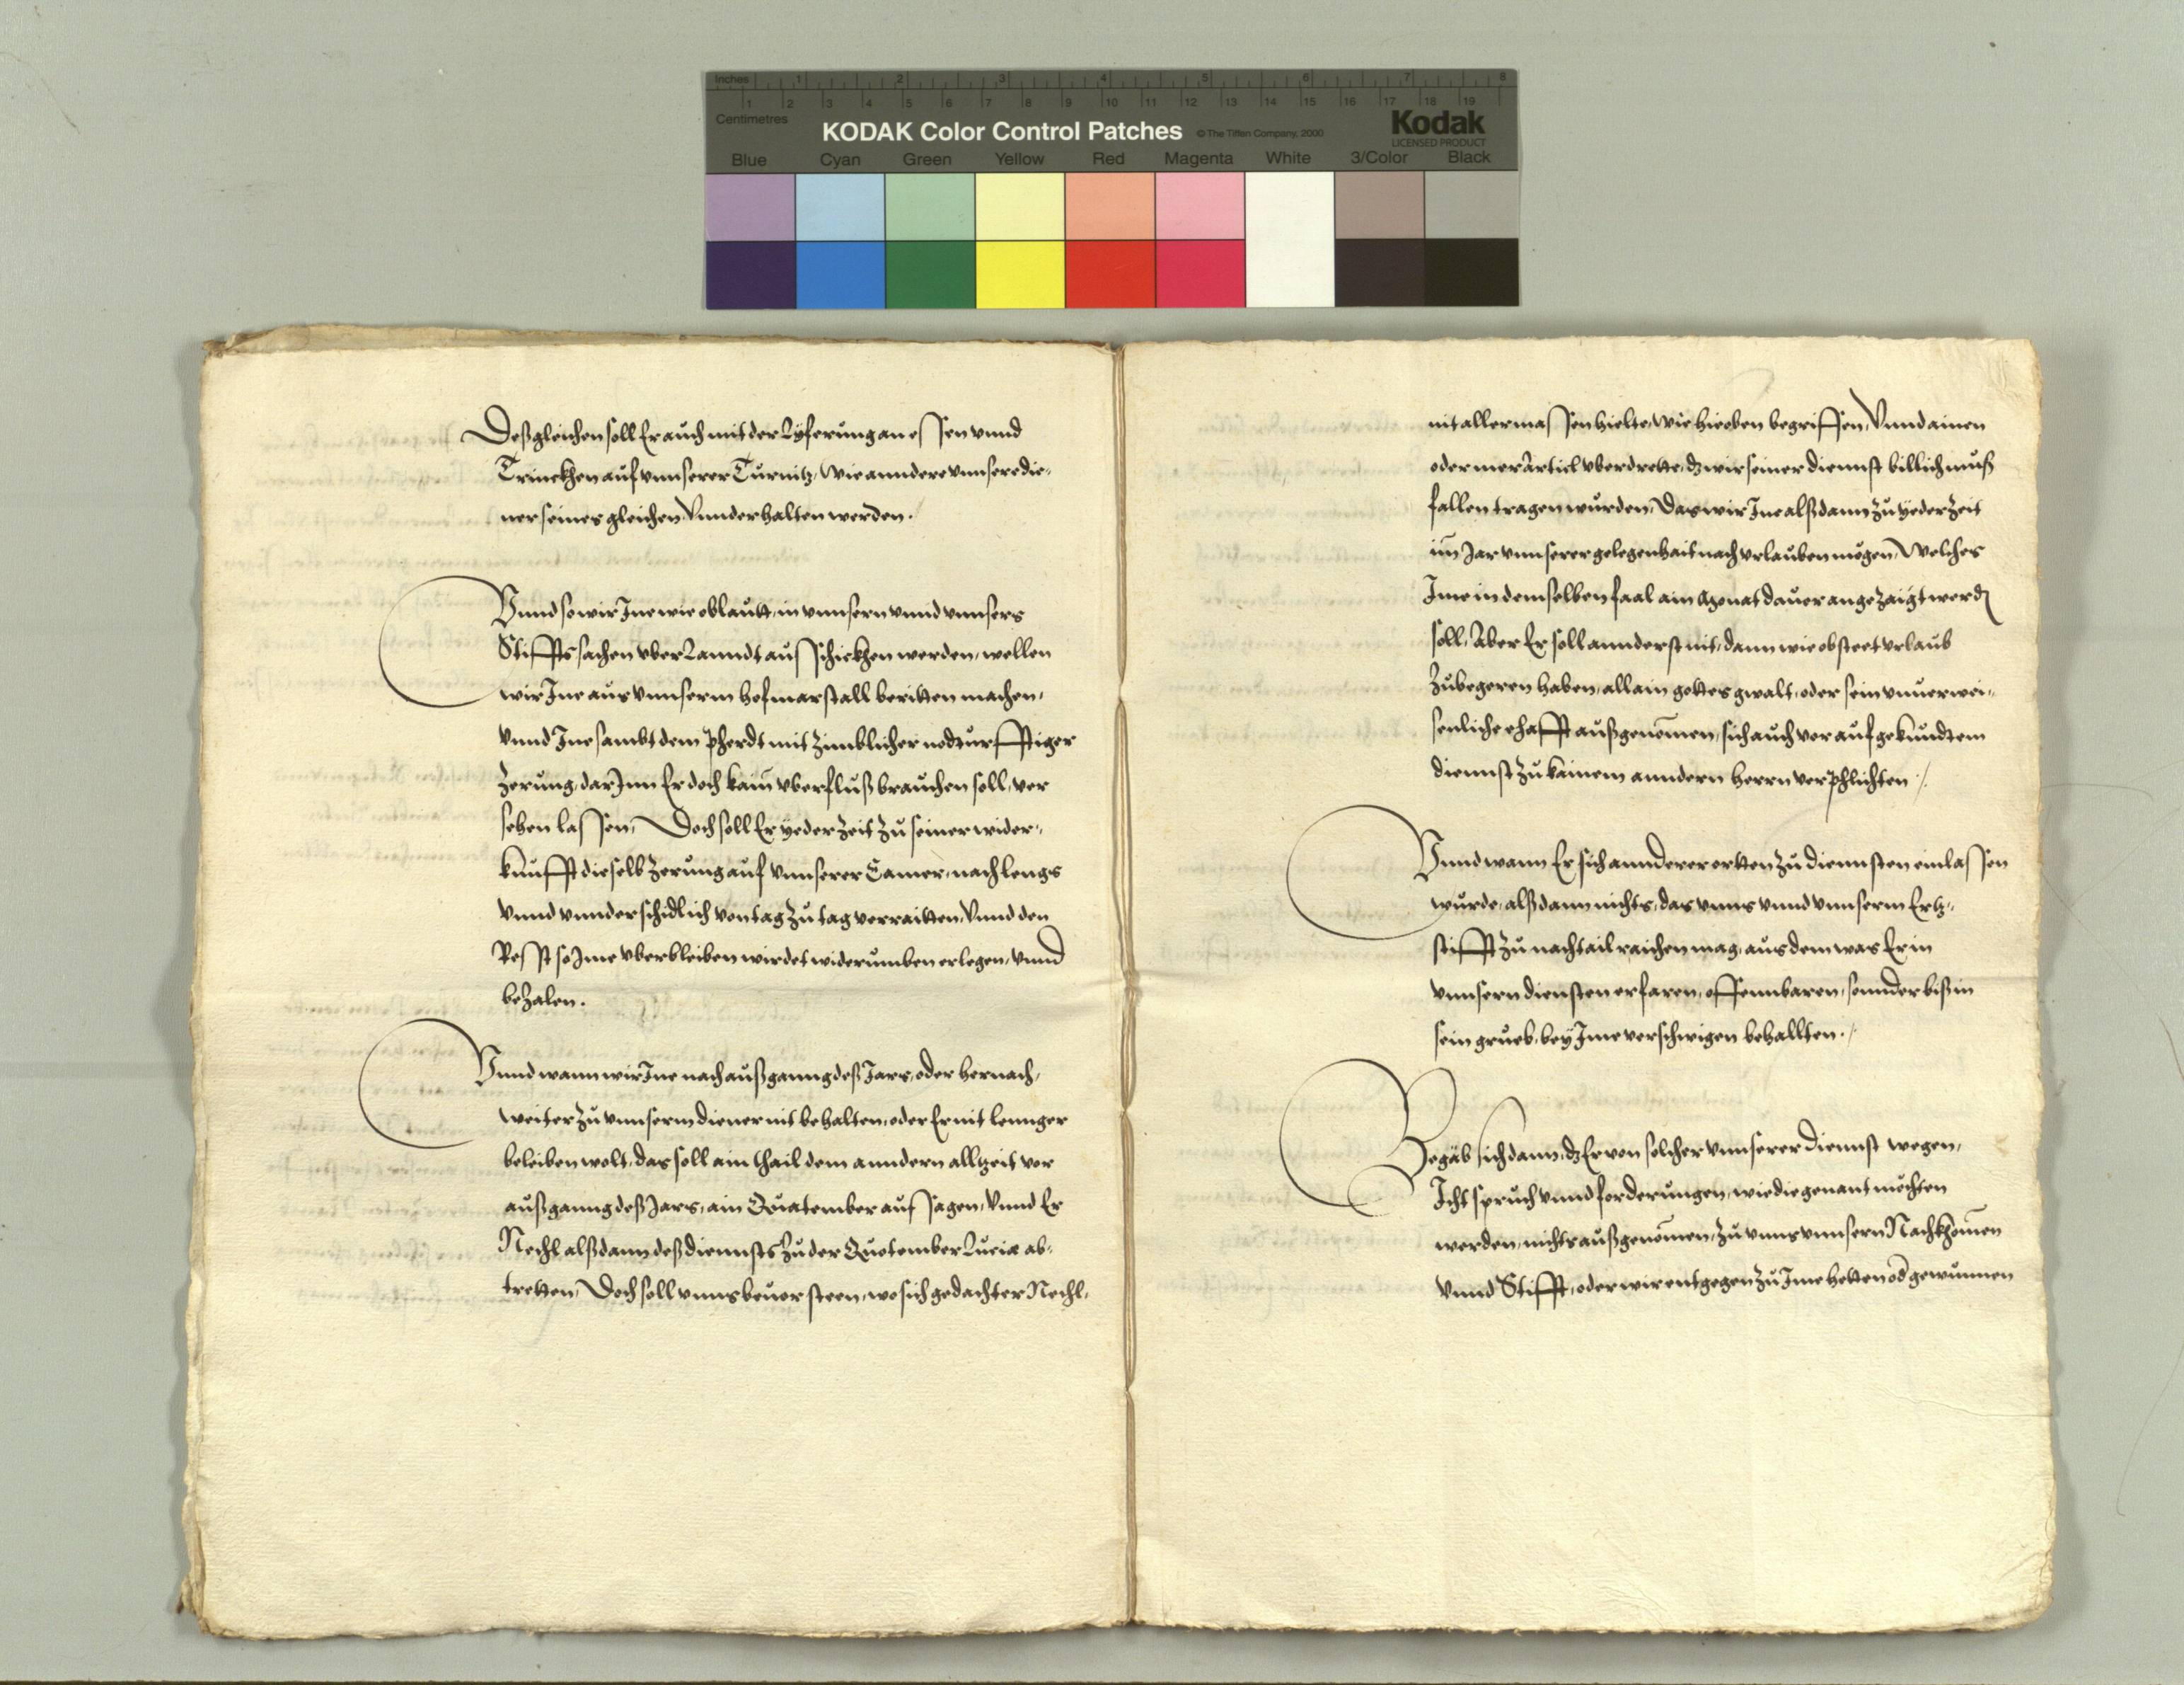 Inches 1 2 3 4 5 6 7 8
1 2 3 4 5 6 7 8 9 10 11 12 13 14 15 16 17 18 19
Centimetres
KODAK Color Control Patches © The Tiffen Company, 2000 Kodak
LICENSED PRODUCT
Blue Cyan Green Yellow Red Magenta White 3/Color Black
Deßgleichen soll Er auch mit der Lyferung an essen vnnd
Trinckhen auf vnnserer Türnitz, wie anndere vnnsere die-
ner seines gleichen Vnnderhalten werden.
Vnnd so wir Ine wie oblautt, in vnnsern vnnd vnnsers
Stiffts sachen vber Lanndt ausschickhen werden, wellen
wir Ine aus vnnserm hofmarstall beritten machen,
vnnd Ine sambt dem pherdt mit zimblicher nodturfftiger
zerung, darInn Er doch kain vberfluß brauchen soll, ver
sehen lassen, Doch soll Er yeder zeit zu seiner wider-
kunfft dieselb zerung auf vnnserer Camer, nach lengs
vnnd vnnderschidlich von tag zu tag verraitten, Vnnd den
Resst so Ime vberbleiben wirdet widerumben erlegen, vnnd
bezalen.
Vnnd wann wir Ine nach außganng deß Jars, oder hernach,
weiter zu vnnserm diener nit behalten, oder Er nit lennger
beleiben wolt, das soll ain thail dem anndern alltzeit vor
außganng deß Jars, ain Quatember aufsagen, Vnnd Er
Nechl alßdann deß diennsts zu der Quotember Luciæ ab-
tretten, Doch soll vnns beuor steen, wo sich gedachter Nechl,
nit allermassen hielte, wie hieoben begriffen, Vnnd ainen
oder mer Articl vberdrette, dz wir seiner diennst billich muß
fallen tragen wurden, Das wir Ine alßdann zu yeder zeit
im̄ Jar vnnserer gelegenhait nach vrlauben mögen, Welches
Ime in demselben faal ain Monat dauor angezaigt werdn
soll, Aber Er soll annderst nit, dann wie obsteet vrlaub
zubegeren haben, allain gottes gwalt, oder sein vnuerwei-
senliche ehafft außgenom̄en, sich auch vor aufgekundtem
diennst zu kainem anndern herrn verphlichten ./.
Vnnd wann Er sich annderer orten zu diennsten einlassen
wurde, alßdann nichts, das vnns vnnd vnnserm Ertz-
stifft zu nachtail raichen mag, aus dem was Er in
vnnsern diensten erfaren, offennbaren, sonnder biß in
sein grueb, bey Ime verschwigen behallten ./.
Begäb sich dann, dz Er von solcher vnnserer diennst wegen,
Icht spruch vnnd forderungen, wie die genant möchten
werden, nichts außgenom̄en, zu vnns vnnsern Nachkhom̄en
vnnd Stifft, oder wir entgegen zu Ime hetten od gewunnen